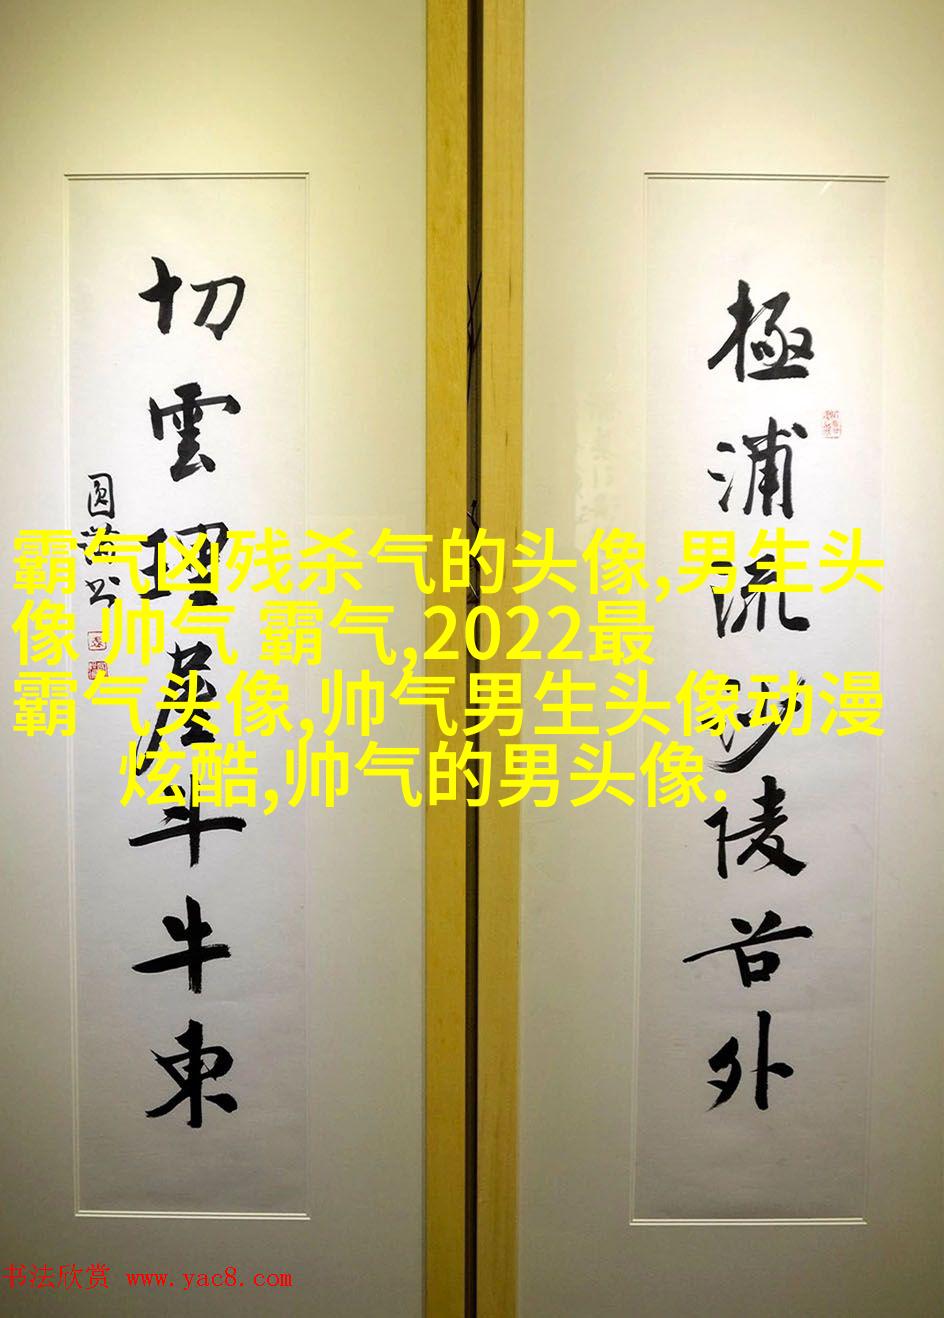 極浦流沙陵谷外
切雲理崖斗牛東
圓 书
霸气凶残杀气的头像,男生头
像 帅气 霸气,2022最
霸气头像,帅气男生头像动漫
炫酷,帅气的男头像.
书法欣赏 www.yac8.com